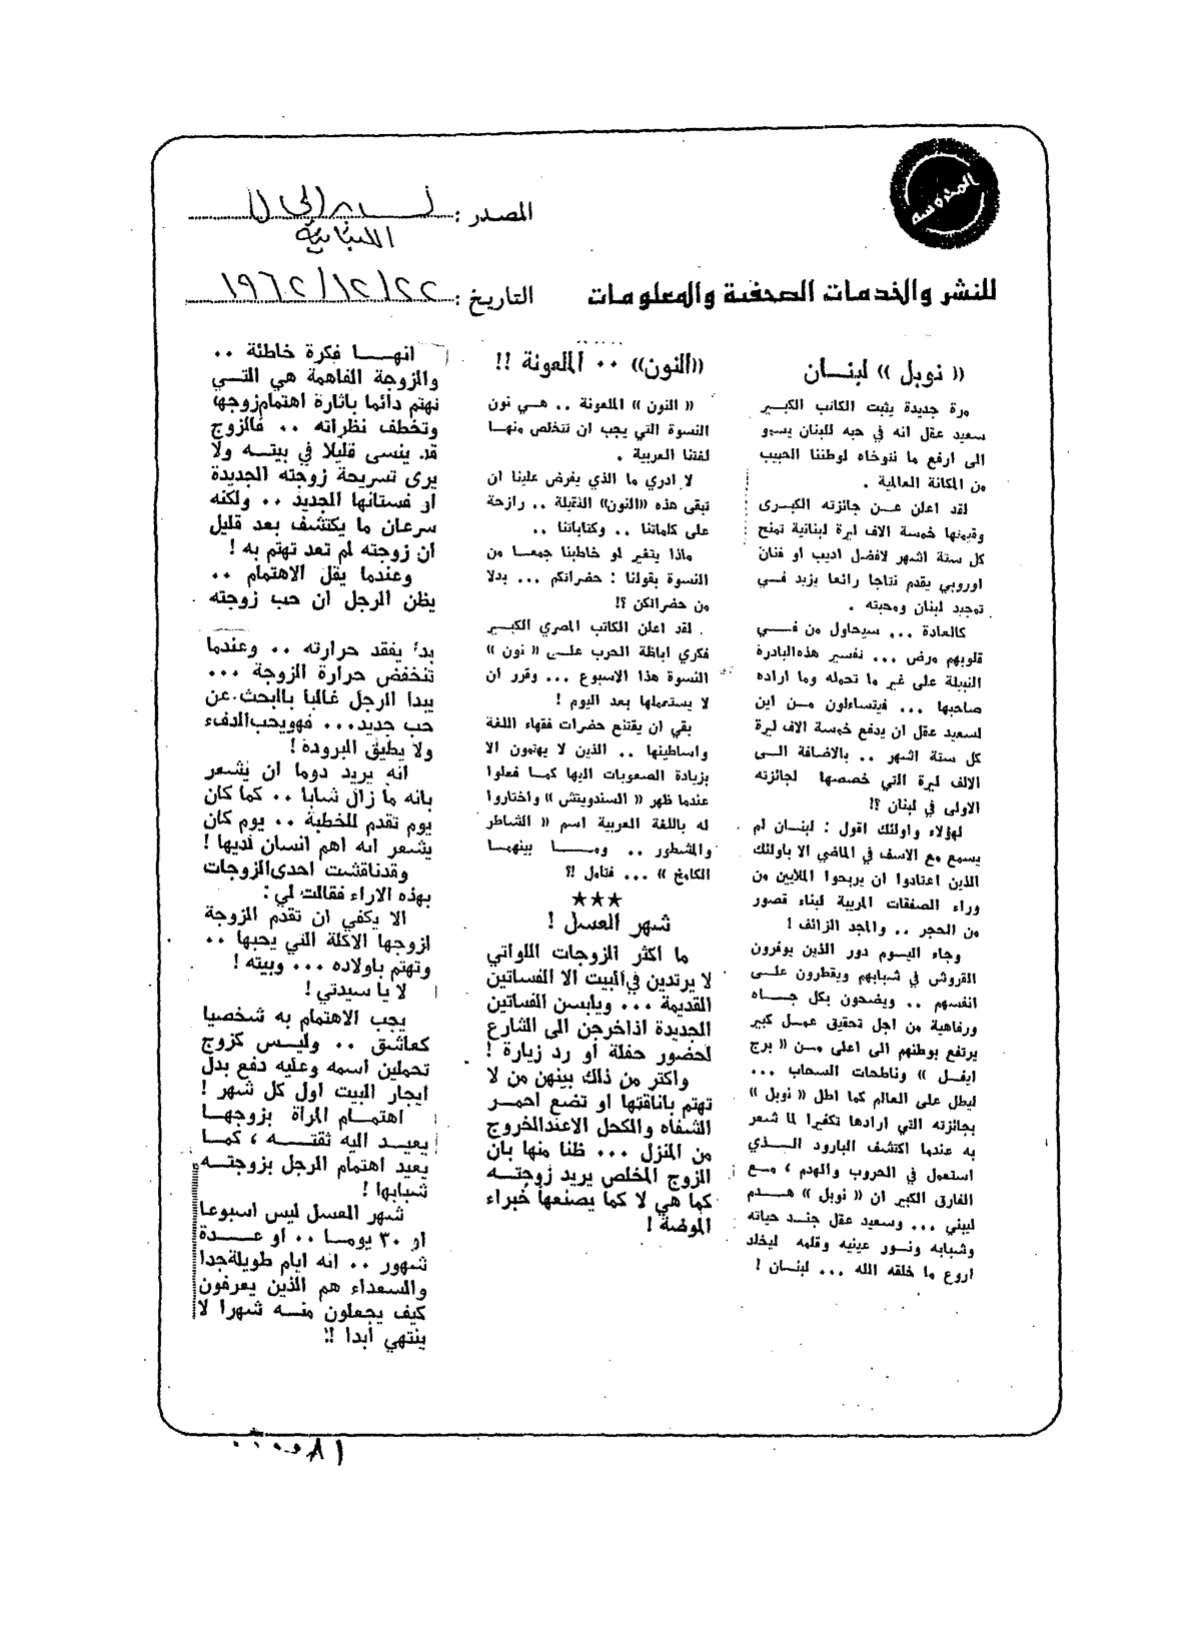 المحروسة
المصدر : لسان الحال
اللبنانية
للنشر والخدمات الصحفية والمعلومات
التاريخ : ٢٢/١٢/١٩٦٢
(( نوبل )) لبنـــان
مرة جديدة يثبت الكاتب الكبير
سعيد عقل انه في حبه للبنان يسمو
الى ارفع ما نتوخاه لوطننا الحبيب
من المكانة العالمية .
لقد اعلن عــن جائزته الكبــرى
وقيمتها خمسة الاف ليرة لبنانية تمنح
كل ستة اشهر لافضل اديب او فنان
اوروبي يقدم نتاجا رائعا يزيد فــي
تمجيد لبنان ومحبته .
كالعادة ... سيحاول من فــي
قلوبهم مرض ... تفسير هذه البادرة
النبيلة على غير ما تحمله وما اراده
صاحبها ... فيتساءلون مــن اين
لسعيد عقل ان يدفع خمسة الاف ليرة
كل ستة اشهر .. بالاضافة الــى
الالف ليرة التي خصصها لجائزته
الاولى في لبنان ؟!
لهؤلاء واولئك اقول : لبنــان لم
يسمع مع الاسف في الماضي الا باولئك
الذين اعتادوا ان يربحوا الملايين من
وراء الصفقات المريبة لبناء قصور
من الحجر .. والمجد الزائف !
وجاء اليــوم دور الذين يوفرون
القروش في شبابهم ويقطرون علــى
انفسهم .. ويضحون بكل جــاه
ورفاهية من اجل تحقيق عمــل كبير
يرتفع بوطنهم الى اعلى مــن (( برج
ايفــل )) وناطحات السحاب ...
ليطل على العالم كما اطل (( نوبل ))
بجائزته التي ارادها تكفيرا لما شعر
به عندما اكتشف البارود الــذي
استعمل في الحروب والهدم ، مــع
الفارق الكبير ان (( نوبل )) هــدم
ليبني ... وسعيد عقل جنــد حياته
وشبابه ونــور عينيه وقلمه ليخلد
اروع ما خلقه الله ... لبنــان !
((النون)) .. الملعونة !!
(( النون )) الملعونة .. هــي نون
النسوة التي يجب ان نتخلص منهــا
لغتنا العربية .
لا ادري ما الذي يفرض علينا ان
تبقى هذه ((النون)) الثقيلة .. رازحة
على كلماتنا .. وكتاباتنا ..
ماذا يتغير لو خاطبنا جمعــا من
النسوة بقولنا : حضراتكم ... بدلا
من حضراتكن ؟!
لقد اعلن الكاتب المصري الكبــير
فكري اباظة الحرب علــى (( نون ))
النسوة هذا الاسبوع ... وقرر ان
لا يستعملها بعد اليوم !
بقي ان يقتنع حضرات فقهاء اللغة
واساطينها .. الذين لا يهتمون الا
بزيادة الصعوبات اليها كمــا فعلوا
عندما ظهر (( السندويتش )) واختاروا
له باللغة العربية اسم (( الشاطر
والمشطور .. ومــــا بينهمــا
الكامخ )) ... فتامل !؟
★★★
شهر العسل !
ما اكثر الزوجات اللواتي
لا يرتدين في البيت الا الفساتين
القديمة ... ويلبسن الفساتين
الجديدة اذا خرجن الى الشارع
لحضور حفلة أو رد زيارة !
واكثر من ذلك بينهن من لا
تهتم باناقتها او تضع احمــر
الشفاه والكحل الا عند الخروج
من المنزل ... ظنا منها بأن
الزوج المخلص يريد زوجتــه
كما هي لا كما يصنعها خبراء
الموضة !
انهــــا فكرة خاطئة ..
والزوجة الفاهمة هي التــي
تهتم دائما باثارة اهتمام زوجها
وتخطف نظراته .. فالزوج
قد ينسى قليلا في بيتــه ولا
يرى تسريحة زوجته الجديدة
او فستانها الجديد .. ولكنه
سرعان ما يكتشف بعد قليل
ان زوجته لم تعد تهتم به !
وعندما يقل الاهتمام ..
يظن الرجل ان حب زوجته
بدأ يفقد حرارته .. وعندما
تنخفض حرارة الزوجة ...
يبدا الرجل غالبا بالبحث عن
حب جديد... فهو يحب الدفء
ولا يطيق البرودة !
انه يريد دوما ان يشعر
بانه ما زال شابا .. كما كان
يوم تقدم للخطبة .. يوم كان
يشعر انه اهم انسان لديها !
وقد ناقشت احدى الزوجات
بهذه الاراء فقالت لي :
الا يكفي ان تقدم الزوجة
لزوجها الاكلة التي يحبها ..
وتهتم باولاده ... وبيته !
لا يا سيدتي !
يجب الاهتمام به شخصيا
كعاشق .. وليــس كزوج
تحملين اسمه وعليه دفع بدل
ايجار البيت اول كل شهر !
اهتمــام المرأة بزوجهــا
يعيــد اليه ثقتــه ، كمــا
يعيد اهتمام الرجل بزوجتــه
شبابها !
شهر العسل ليس اسبوعا
او ٣٠ يومــا .. او عــدة
شهور .. انه ايام طويلة جدا
والسعداء هم الذين يعرفون
كيف يجعلون منــه شهرا لا
ينتهي أبدا !!